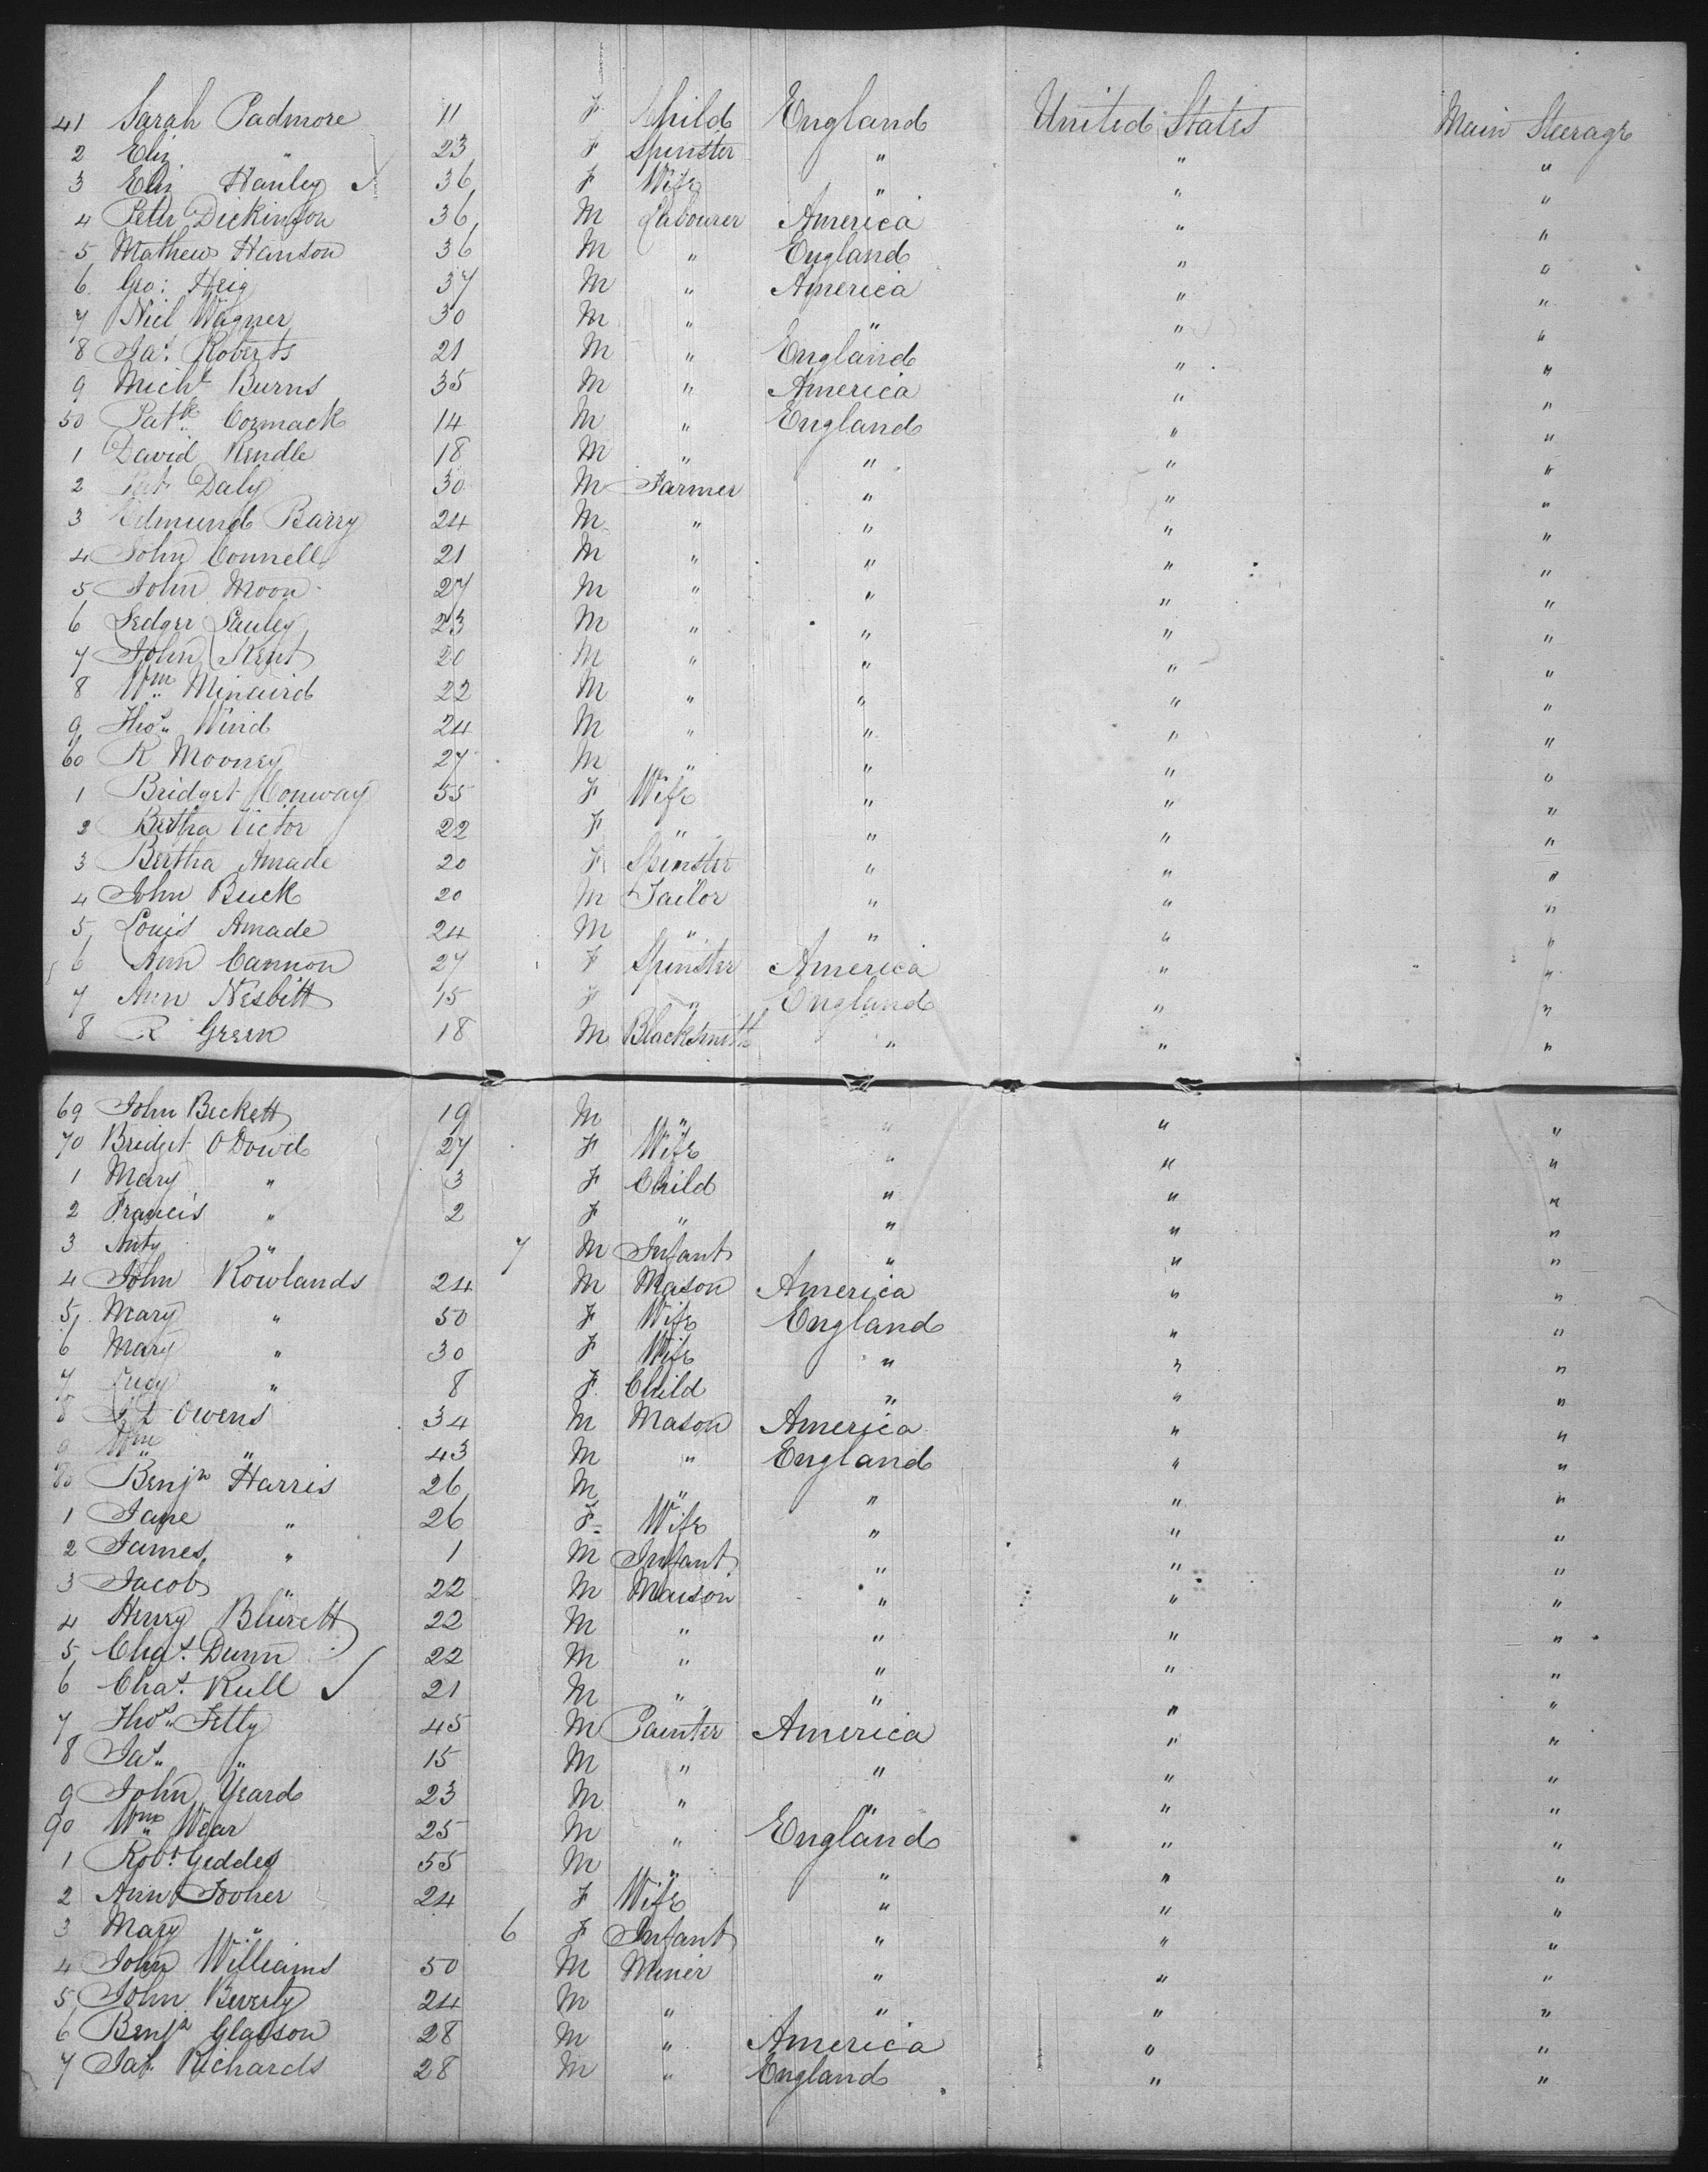 41 Sarah Padmore 11 F Child England United States Main Steerage
2 Eliz " 23 F Spinster " " "
3 Eliz Hanley ✓ 36 F Wife " " "
4 Peter Dickinson 36 M Labourer America " "
5 Mathew Hanson 36 M " England " "
6 Geo: Heig 37 M " America " "
7 Niel Wagner 30 M " " " "
8 Jas. Roberts 21 M " England " "
9 Michl Burns 35 M " America " "
50 Patk. Cormack 14 M " England " "
1 David Rendle 18 M " " " "
2 Daly 30 M Farmer " " "
3 Edmund Barry 24 M " " " "
4 John Connell 21 M " " " "
5 John Moon 27 M " " " "
6 Ledger Pauley 23 M " " " "
7 John Kent 20 M " " " "
8 Wm Minaird 22 M " " " "
9 Thos. Wind 24 M " " " "
60 R Mooney 27 M " " " "
1 Bridget Conway 55 F Wife " " "
2 Bertha Victor 22 F " " " "
3 Bertha Amade 20 F Spinster " " "
4 John Buck 20 M Tailor " " "
5 Louis Amade 24 M " " " "
6 Ann Cannon 27 F Spinster America " "
7 Ann Nesbitt 15 F " England " "
8 R Green 18 M Blacksmith " " "
69 John Beckett 19 M " " " "
70 Bridget ODowd 27 F Wife " " "
1 Mary " 3 F Child " " "
2 Francis " 2 F " " " "
3 Anty " 7 M Infant " " "
4 John Rowlands 24 M Mason America " "
5 Mary " 50 F Wife England " "
6 Mary " 30 F Wife " " "
7 Lucy " 8 F Child " " "
8 Owens 34 M Mason America " "
9 Wm " 43 M " England " "
80 Benjn Harris 26 M " " " "
1 Jane " 26 F Wife " " "
2 James " 1 M Infant " " "
3 Jacob " 22 M Mason " " "
4 Henry Blurett 22 M " " " "
5 Chas. Dunn 22 M " " " "
6 Chas. Rull ✓ 21 M " " " "
7 Thos. Fetty 45 M Painter America " "
8 Jas. " 15 M " " " "
9 John Yeard 23 M " " " "
90 Wm Wear 25 M " England " "
1 Robt Geddes 55 M " " " "
2 Ann Fooher 24 F Wife " " "
3 Mary " 6 F Infant " " "
4 John Williams 50 M Miner " " "
5 John Beverly 24 M " " " "
6 Benjn Glasson 28 M " America " "
7 Jas. Richards 28 M " England " "